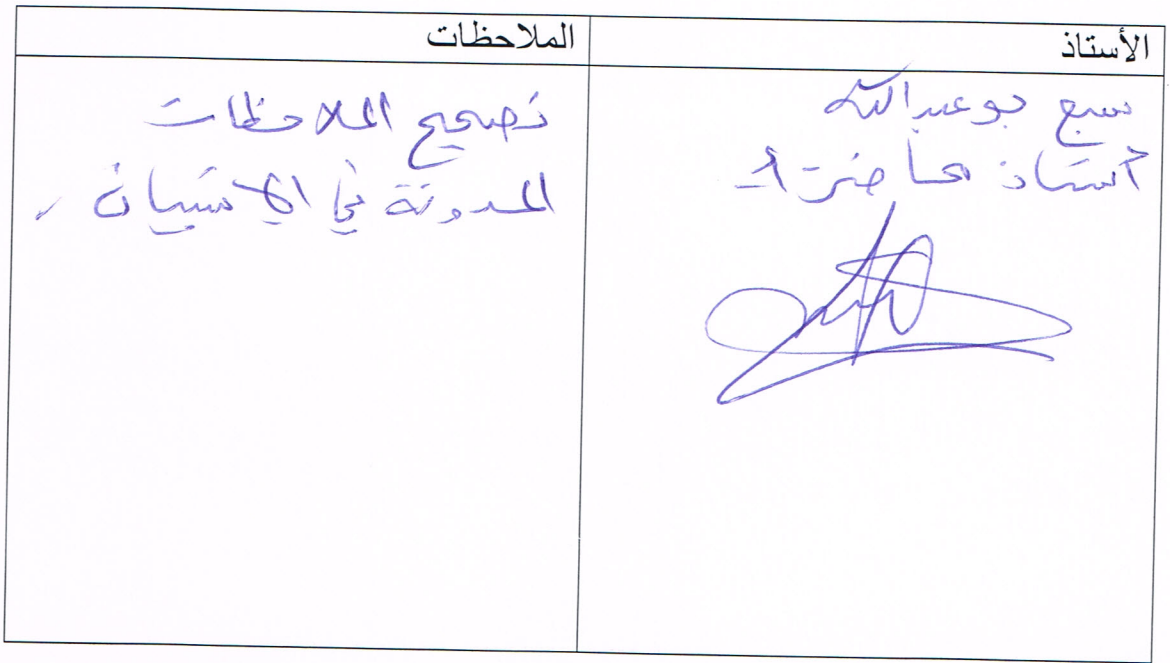 الأستاذ
الملاحظات
سبع بوعبدالله
أستاذ محاضر -أ-
تصحيح الملاحظات
المدونة في الاستبيان